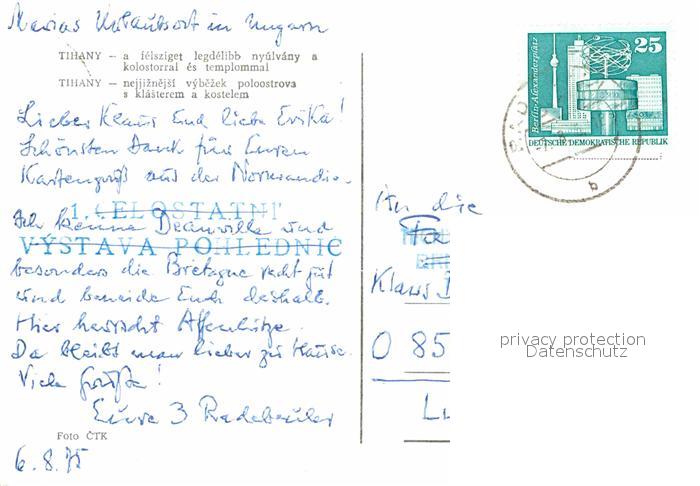 Marias Urlaubsort in Ungarn
TIHANY – a félsziget legdélibb nyúlvány a
kolostorral és templommal
TIHANY – nejjižnější výběžek poloostrova
s klášterem a kostelem
Lieber Klaus und liebe Erika!
Schönsten Dank für Euren
Kartengruß aus der Normandie.
1. CELOSTATNÍ
Ich kenne Deauville und
VÝSTAVA POHLEDNIC
besonders die Bretagne recht gut
und beneide Euch deshalb.
Hier herrscht Affenhitze.
Da bleibt man lieber zu Hause.
Viele Grüße!
Eure 3 Radebeuler
Foto ČTK
6.8.75
Berlin-Alexanderplatz
25
DEUTSCHE DEMOKRATISCHE REPUBLIK
b
An die
Fa
Klaus
O 85
L
privacy protection
Datenschutz